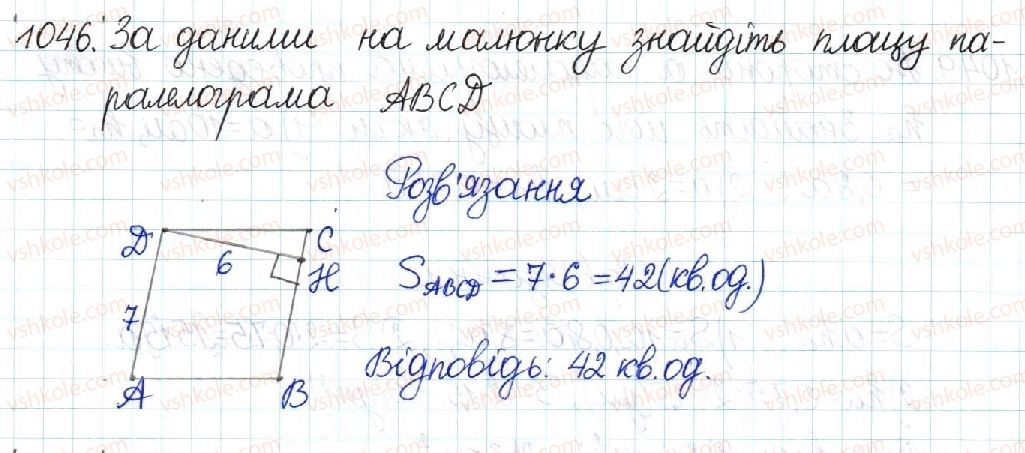 1046. За даними на малюнку знайдіть площу па-
ралелограма ABCD
Розв'язання
D C
6 H
7
A B
S ABCD = 7·6 = 42 (кв.од.)
Відповідь: 42 кв.од.
vshkole.com